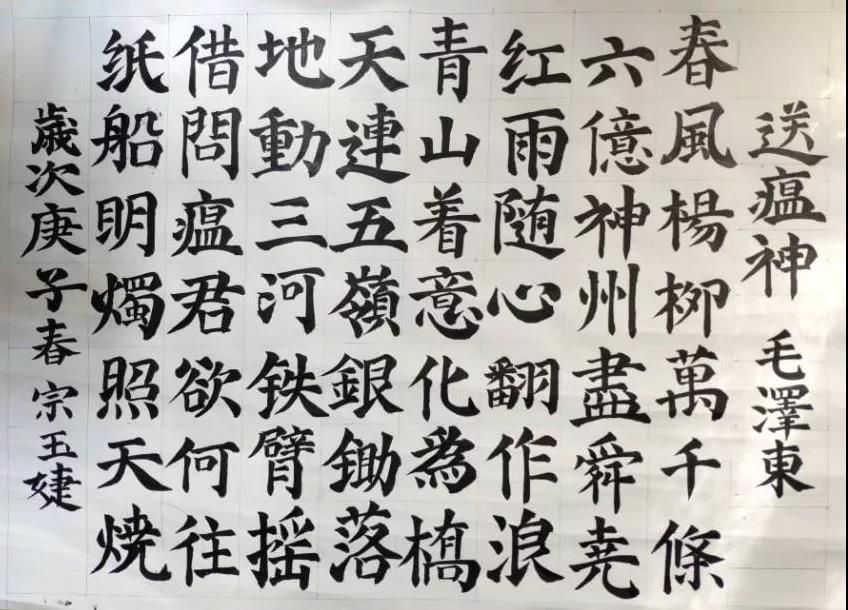 送瘟神 毛澤東
春風楊柳萬千條
六億神州盡舜尭
红雨随心翻作浪
青山着意化為橋
天連五嶺銀鋤落
地動三河铁臂摇
借問瘟君欲何往
纸船明燭照天焼
歲次庚子春宗玉婕